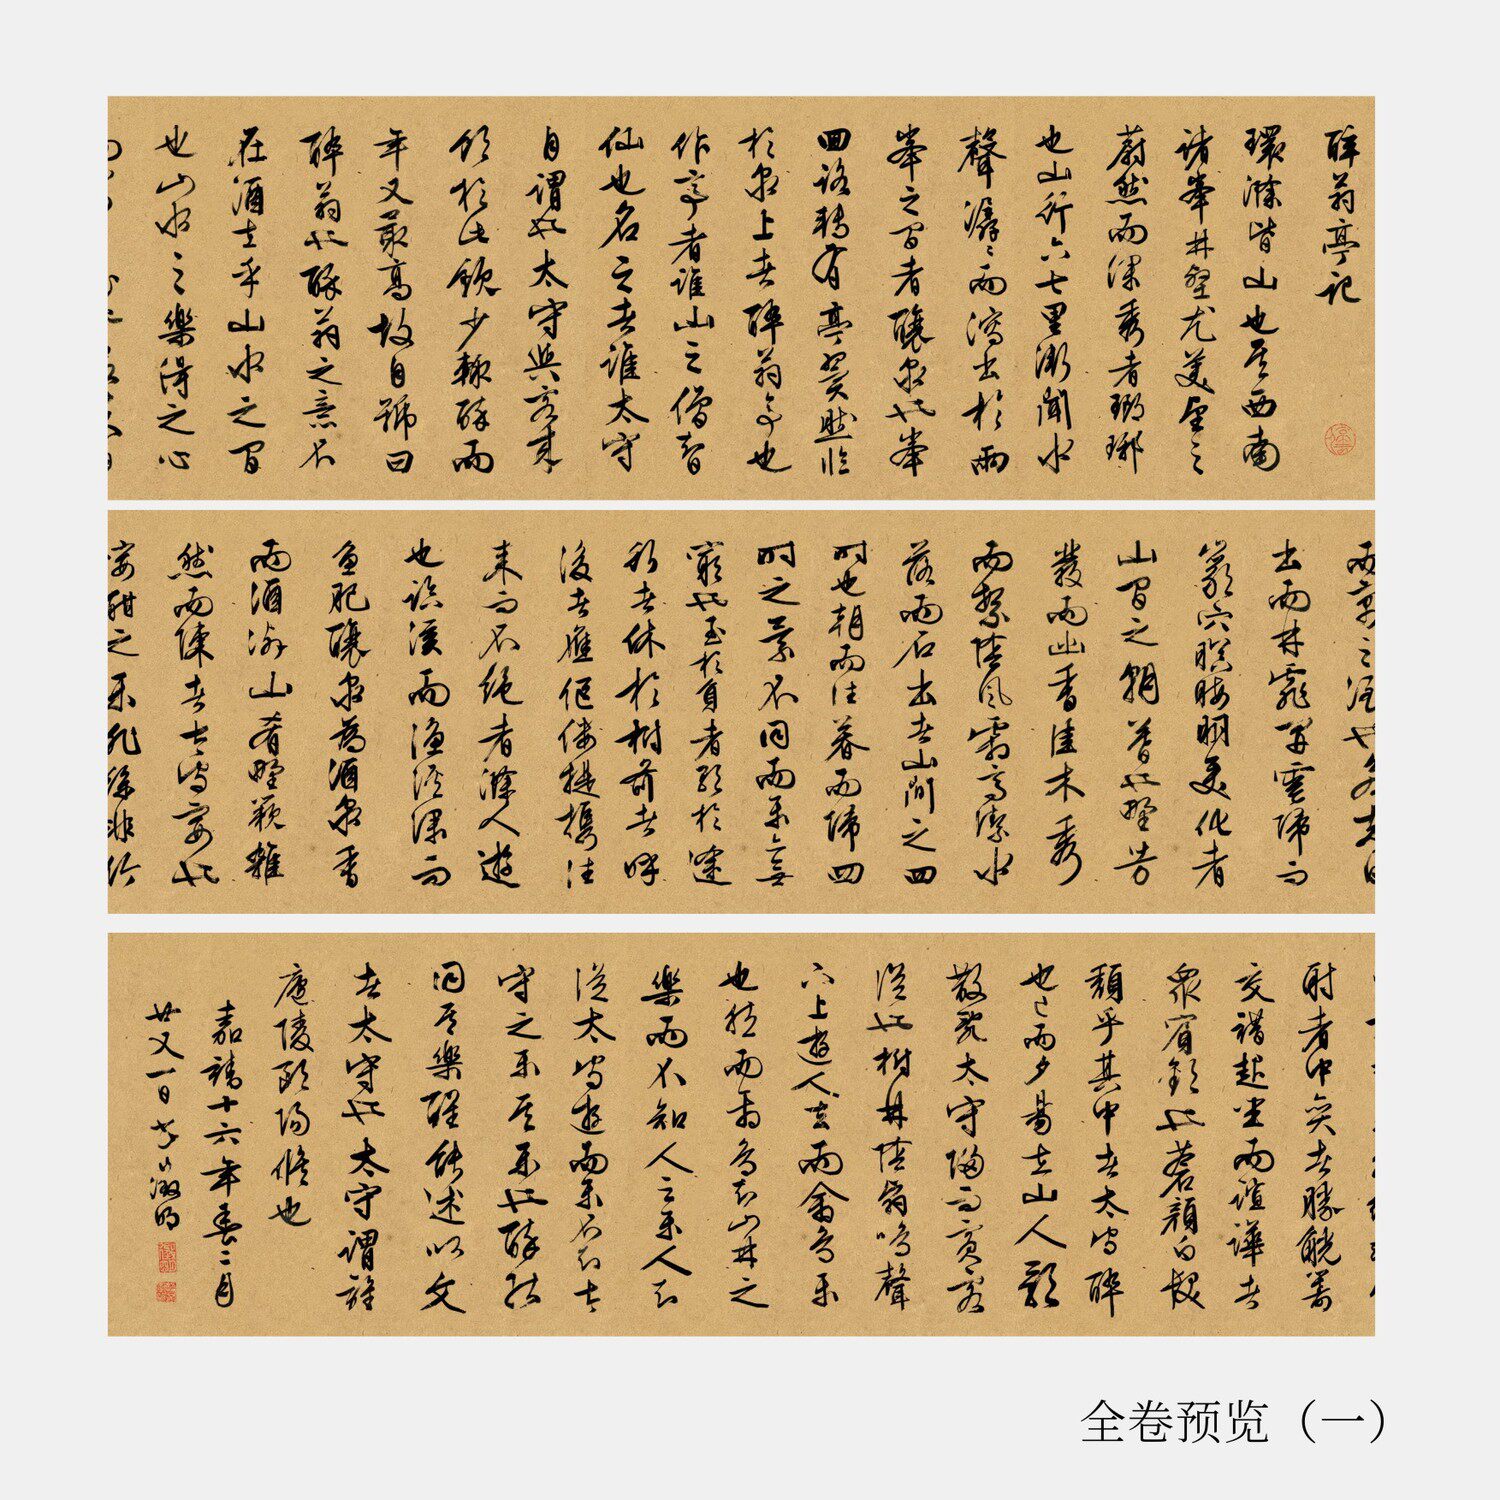 醉翁亭記
環滁皆山也其西南
諸峯林壑尤美望之
蔚然而深秀者瑯琊
也山行六七里漸聞水
聲潺〻而瀉出於兩
峯之間者釀泉也峯
回路轉有亭翼然臨
於泉上者醉翁亭也
作亭者誰山之僧智
仙也名之者誰太守
自謂也太守與客來
飲於此飲少輒醉而
年又最高故自號曰
醉翁也醉翁之意不
在酒在乎山水之間
也山水之樂得之心
而寓之酒也若夫日
出而林霏開雲歸而
巖穴暝晦明變化者
山間之朝暮也野芳
發而幽香佳木秀
而繁陰風霜高潔水
落而石出者山間之四
時也朝而往暮而歸四
時之景不同而樂無
窮也至於負者歌於途
行者休於樹前者呼
後者應傴僂提攜往
來而不絕者滁人遊
也臨溪而漁溪深而
魚肥釀泉為酒泉香
而酒洌山肴野蔌雜
然而陳者太守宴也
宴酣之樂非絲非竹
射者中奕者勝觥籌
交錯起坐而諠譁者
衆賓歡也蒼顏白髮
頹乎其中者太守醉
也已而夕陽在山人影
散亂太守歸而賓客
從也樹林陰翳鳴聲
下上遊人去而禽鳥樂
也然而禽鳥知山林之
樂而不知人之樂人知
從太守遊而樂不知太
守之樂其樂也醉能
同其樂醒能述以文
者太守也太守謂誰
廬陵歐陽脩也
嘉靖十六年春二月
廿又一日 徵明
全卷预览（一）